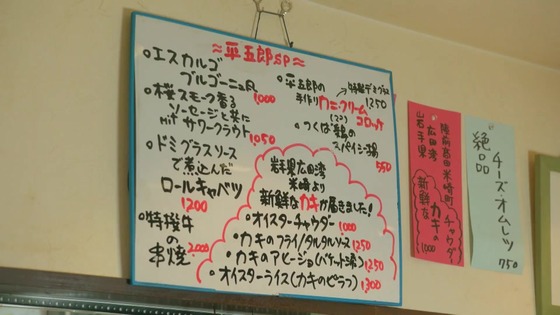 ≈平五郎SP≈
・エスカルゴ
ブルゴーニュ風
1,000
・桜スモーク香る
ソーセージと共に
サワークラウト
1,050
・ドミグラスソース
で煮込んだ
ロールキャベツ
1200
・特撰牛
の
串焼
2,000
・平五郎の
手作りカニクリーム
コロッケ
(2コ)
1250
・つくば鶏の
スパイシー揚
550
岩手県広田湾
米崎より
新鮮なカキが届きました!
・オイスターチャウダー
1,000
・カキのフライ/タルタルソース
1250
・カキのアヒージョ(バケット添)
1,250
・オイスターライス(カキのピラフ)
1,300
岩手県
広田湾
新鮮な
陸前高田米崎町
カキの
チャウダー
1,000
絶品
チーズオムレツ
750